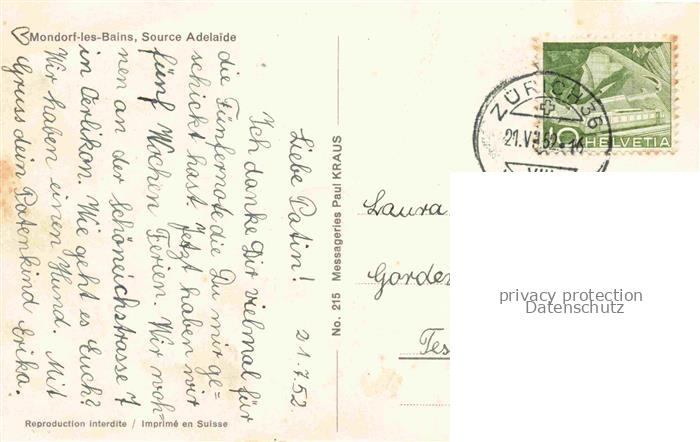 Mondorf-les-Bains, Source Adelaïde
21.7.52
Liebe Patin!
Ich danke Dir vielmal für
die Fünfernote die Du mir ge=
schickt hast. Jetzt haben wir
fünf Wochen Ferien. Wir woh-
nen an der Schöneichstrasse 7
in Oerlikon. Wie geht es Euch?
Wir haben einen Hund. Mit
Gruss dein Patenkind Erika.
Reproduction interdite / Imprimé en Suisse
No. 215 Messageries Paul KRAUS
ZÜRICH 36
21.VII.52-16
VIII
10
HELVETIA
Laura
Gorde
Tes
privacy protection
Datenschutz